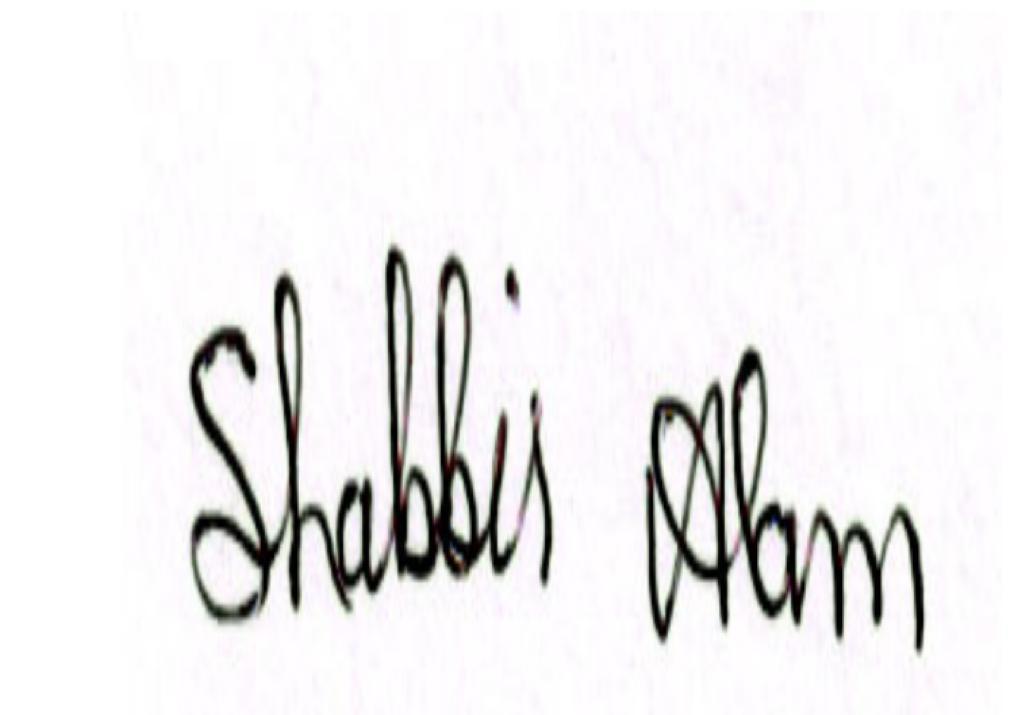 Shabbir Alam